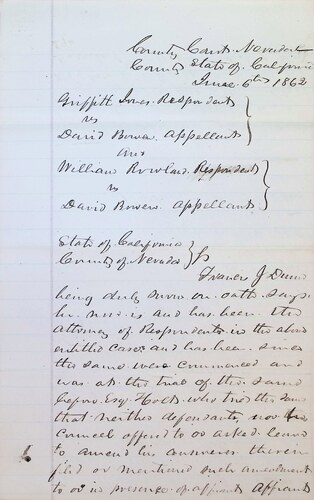 County Court Nevada
County State of California
June 6th 1862
Griffith Jones Respondent
vs
David Bowen Appellant
and
William Rowland Respondent
vs
David Bowen Appellant
State of California
County of Nevada } ss
Francis J Dunn
being duly sworn on oath says
he now is and has been the
Attorney of Respondents in the above
entitled cases and has been since
the same were commenced and
was at the trial of the same
before Esq. Holt who tried the same
that neither defendants, nor his
council offered to or asked leave
to amend his answer therein
filed or mentioned such amendment
to or in presence of affiant Affiant